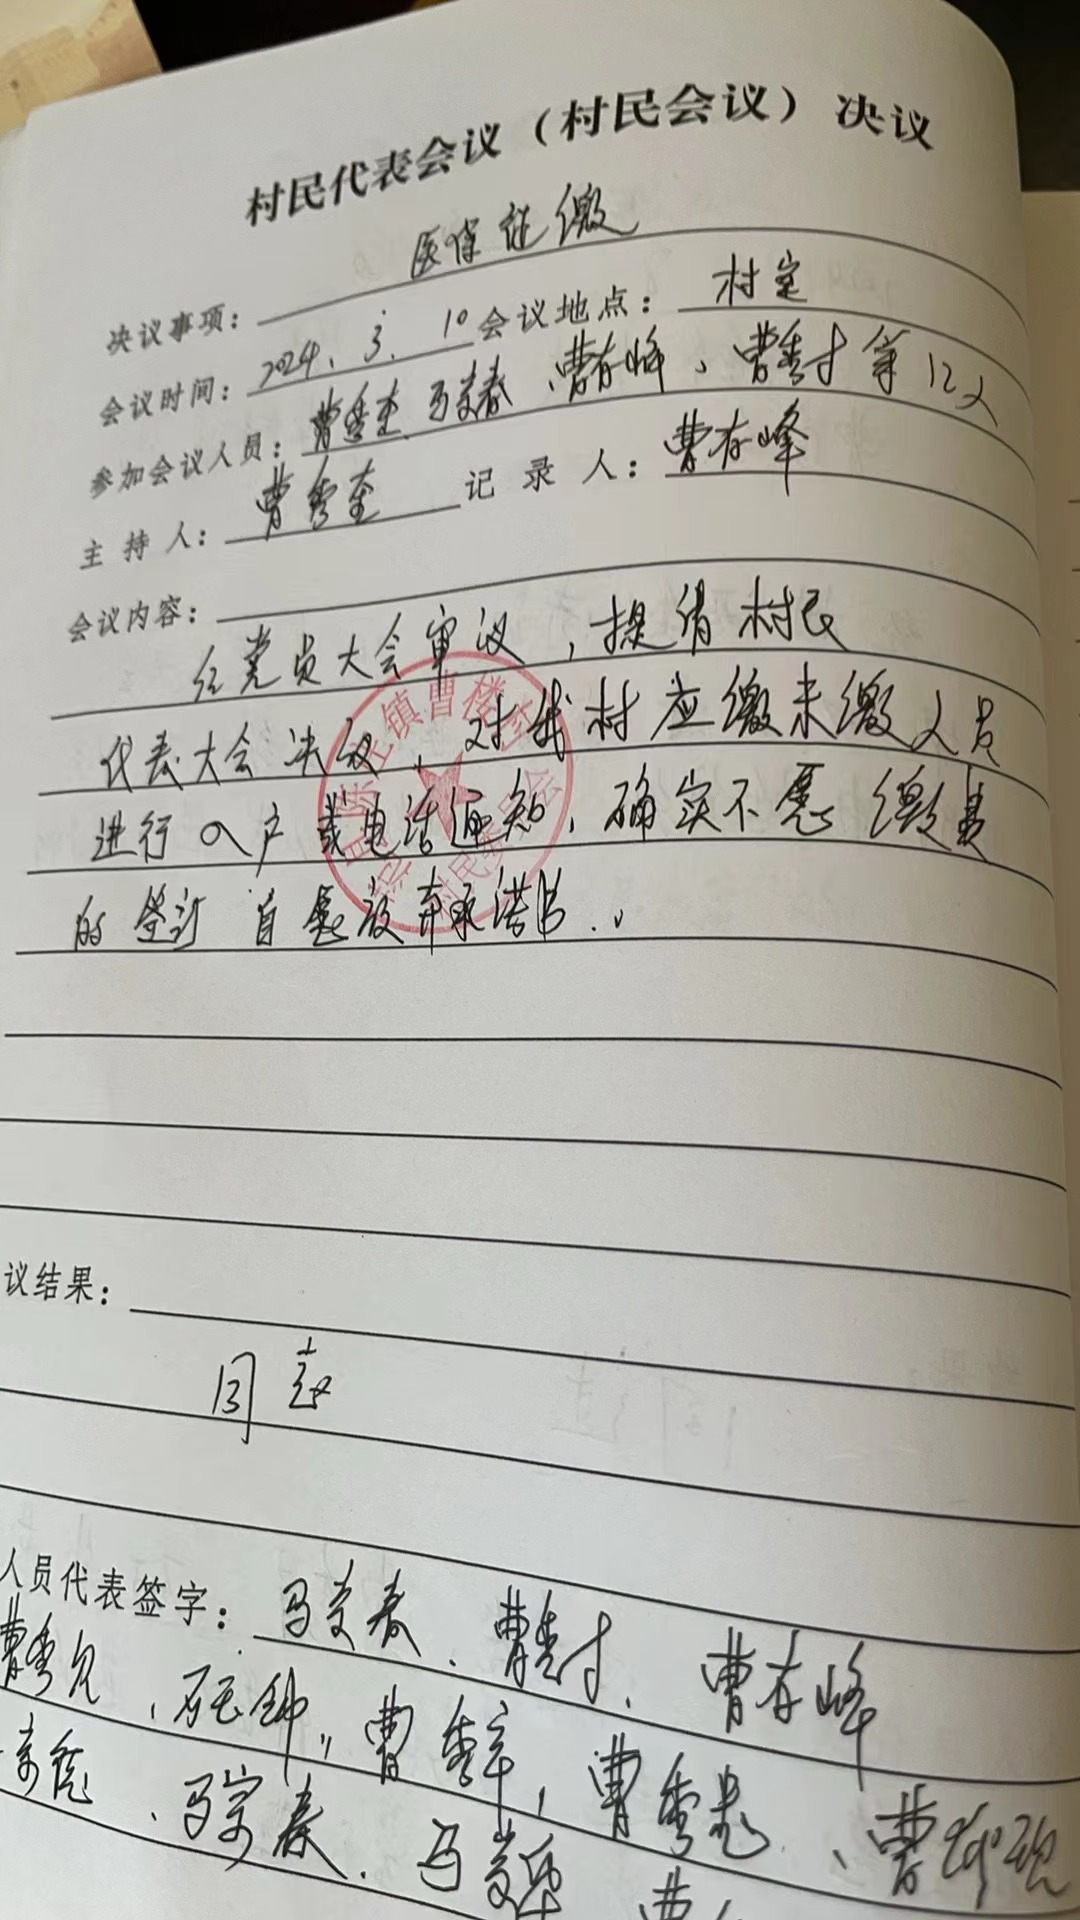 村民代表会议（村民会议）决议
决议事项： 医保征缴
会议时间：2024.3.10 会议地点：村室
参加会议人员：曹秀奎、马荣春、曹存峰、曹秀才等12人
主持人：曹秀奎 记录人：曹存峰
会议内容：
经党员大会审议，提请村民
代表大会决议，对我村应缴未缴人员
进行入户或电话通知，确实不愿缴费
的签订自愿放弃承诺书。
镇曹楼村
村民委员会
议结果：
同意
人员代表签字：马荣春、曹秀才、曹存峰
曹秀 、 曹秀 ，曹秀 、曹
、马宗春、马